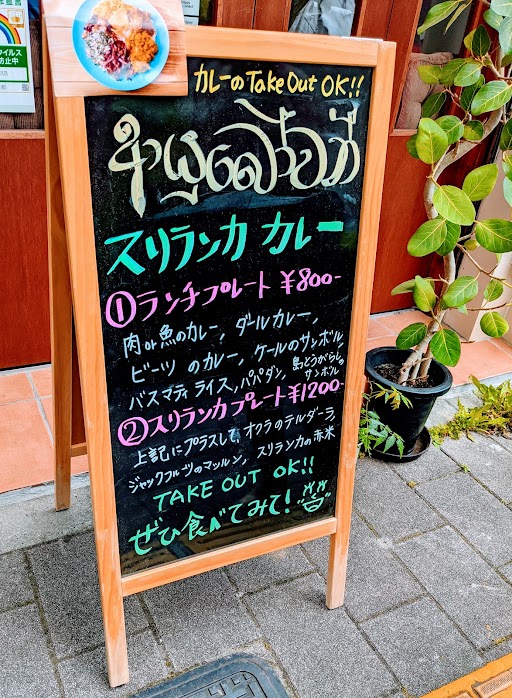 宣言
ウイルス
防止中
カレーのTake Out OK!!
ආයුබෝවන්
スリランカ カレー
①ランチプレート ¥800-
肉or魚のカレー, ダールカレー,
ビーツ のカレー, ケールのサンボル,
バスマティライス, パパダン, 島とうがらしのサンボル
②スリランカプレート¥1200-
上記にプラスして オクラのテルダーラ,
ジャックフルーツのマッルン, スリランカの赤米
TAKE OUT OK!!
ぜひ食べてみて!